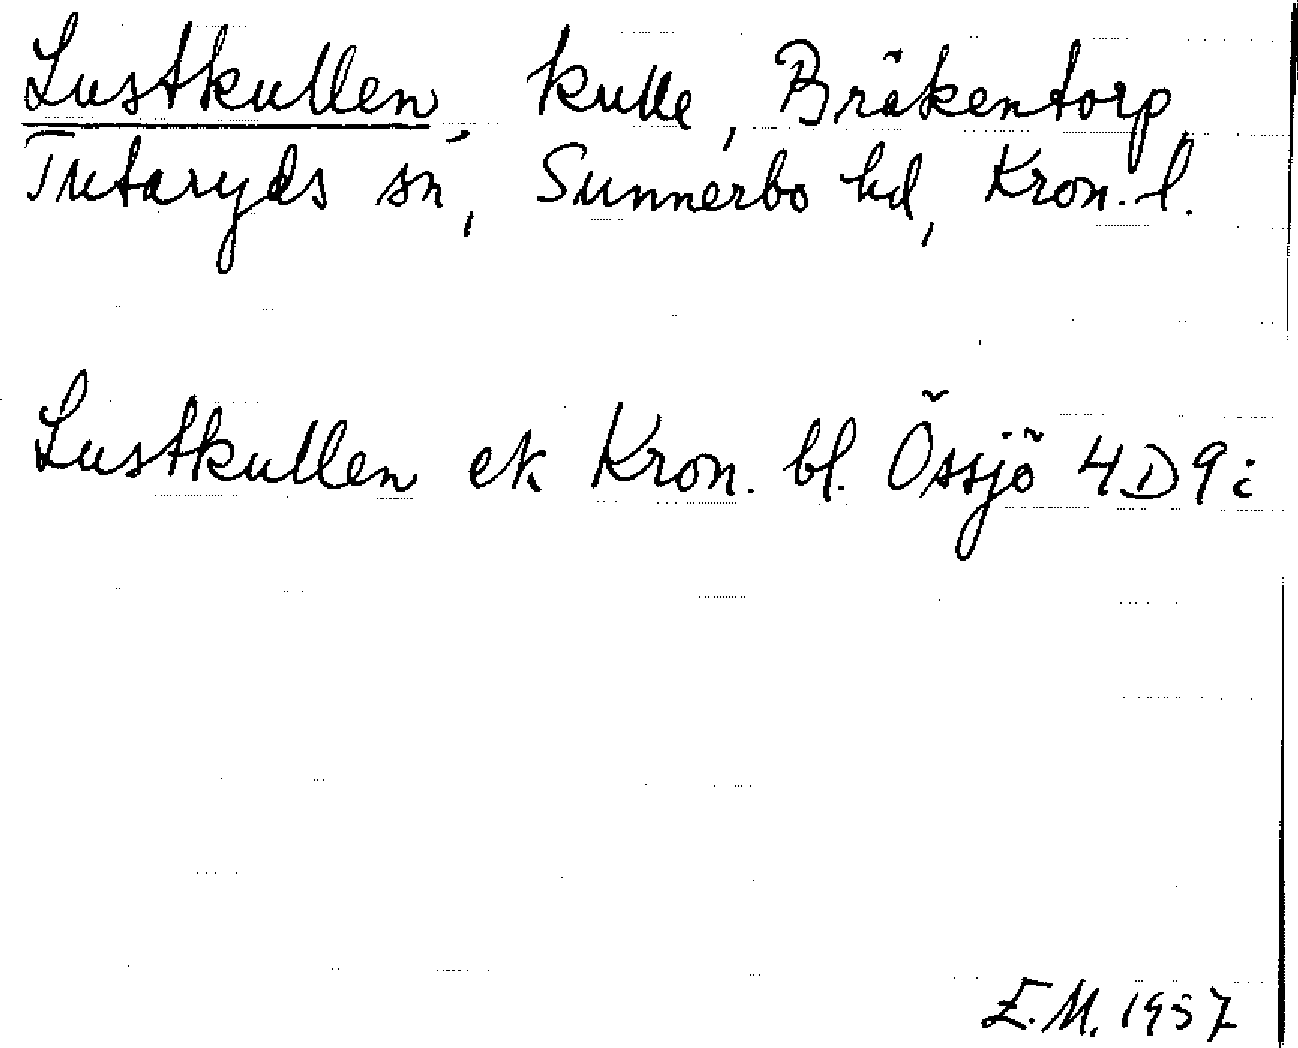 Lustkullen, kulle, Bräkentorp,
Tutaryds sn, Sunnerbo hd, Kron. l.
Lustkullen ek Kron. bl. Össjö 4D9i
E.M. 1957